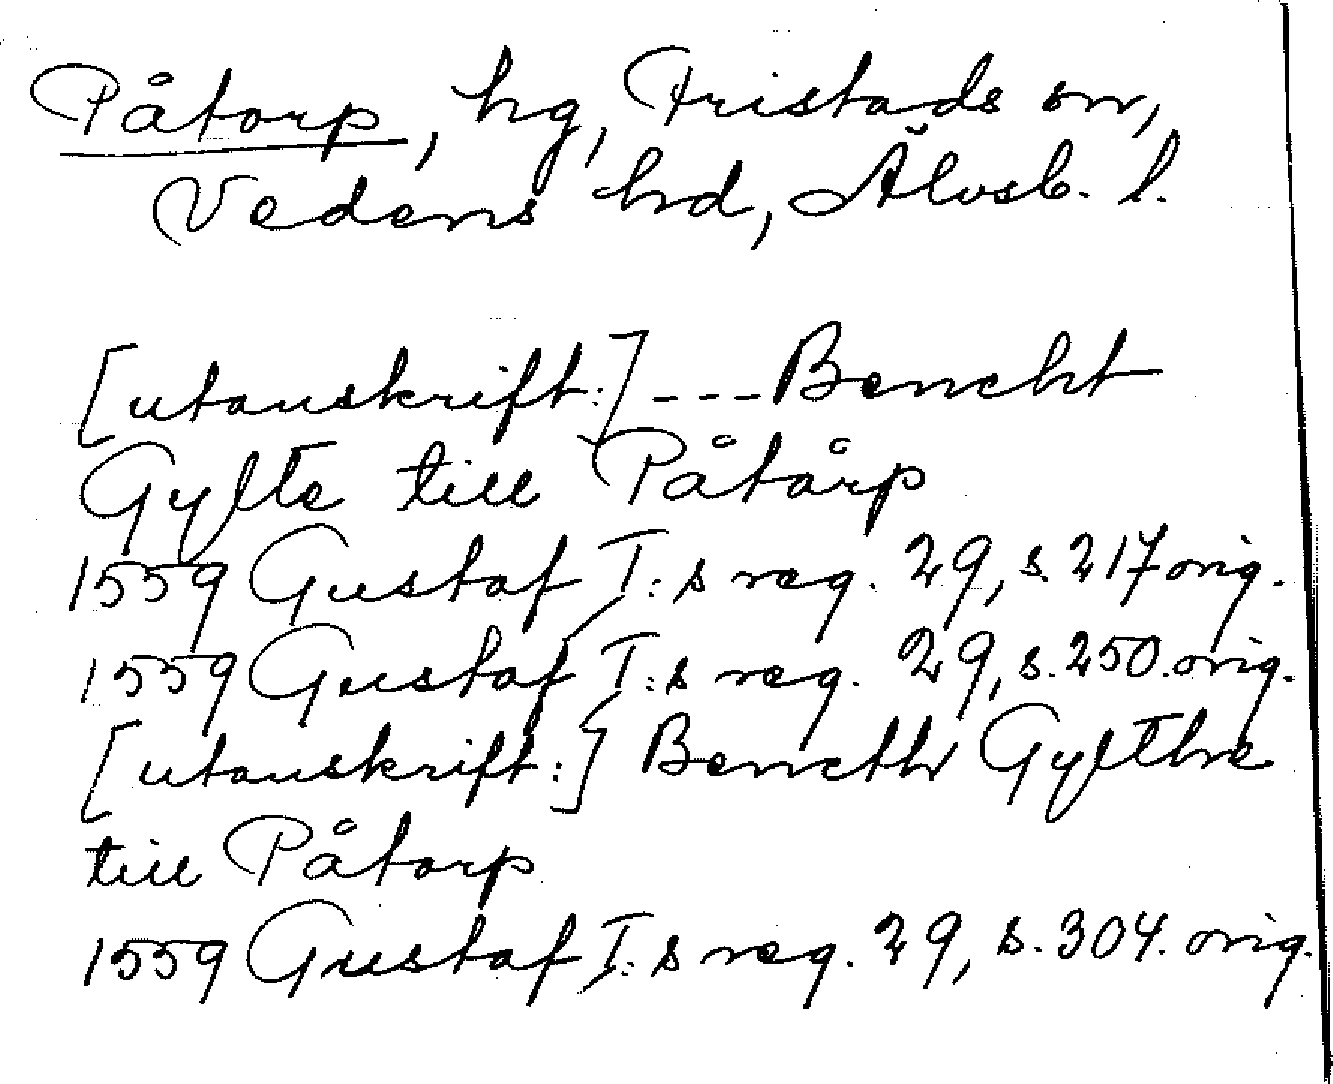 Påtorp, hg, Fristads sn,
Vedens hd, Älvsb. l.
[utanskrift:] --- Bencht
Gylte till Påtårp
1559 Gustaf I:s reg. 29, s. 217 orig.
1559 Gustaf I:s reg. 29, s. 250. orig.
[utanskrift:] Bencth Gylthe
till Påtorp
1559 Gustaf I:s reg. 29, s. 304. orig.